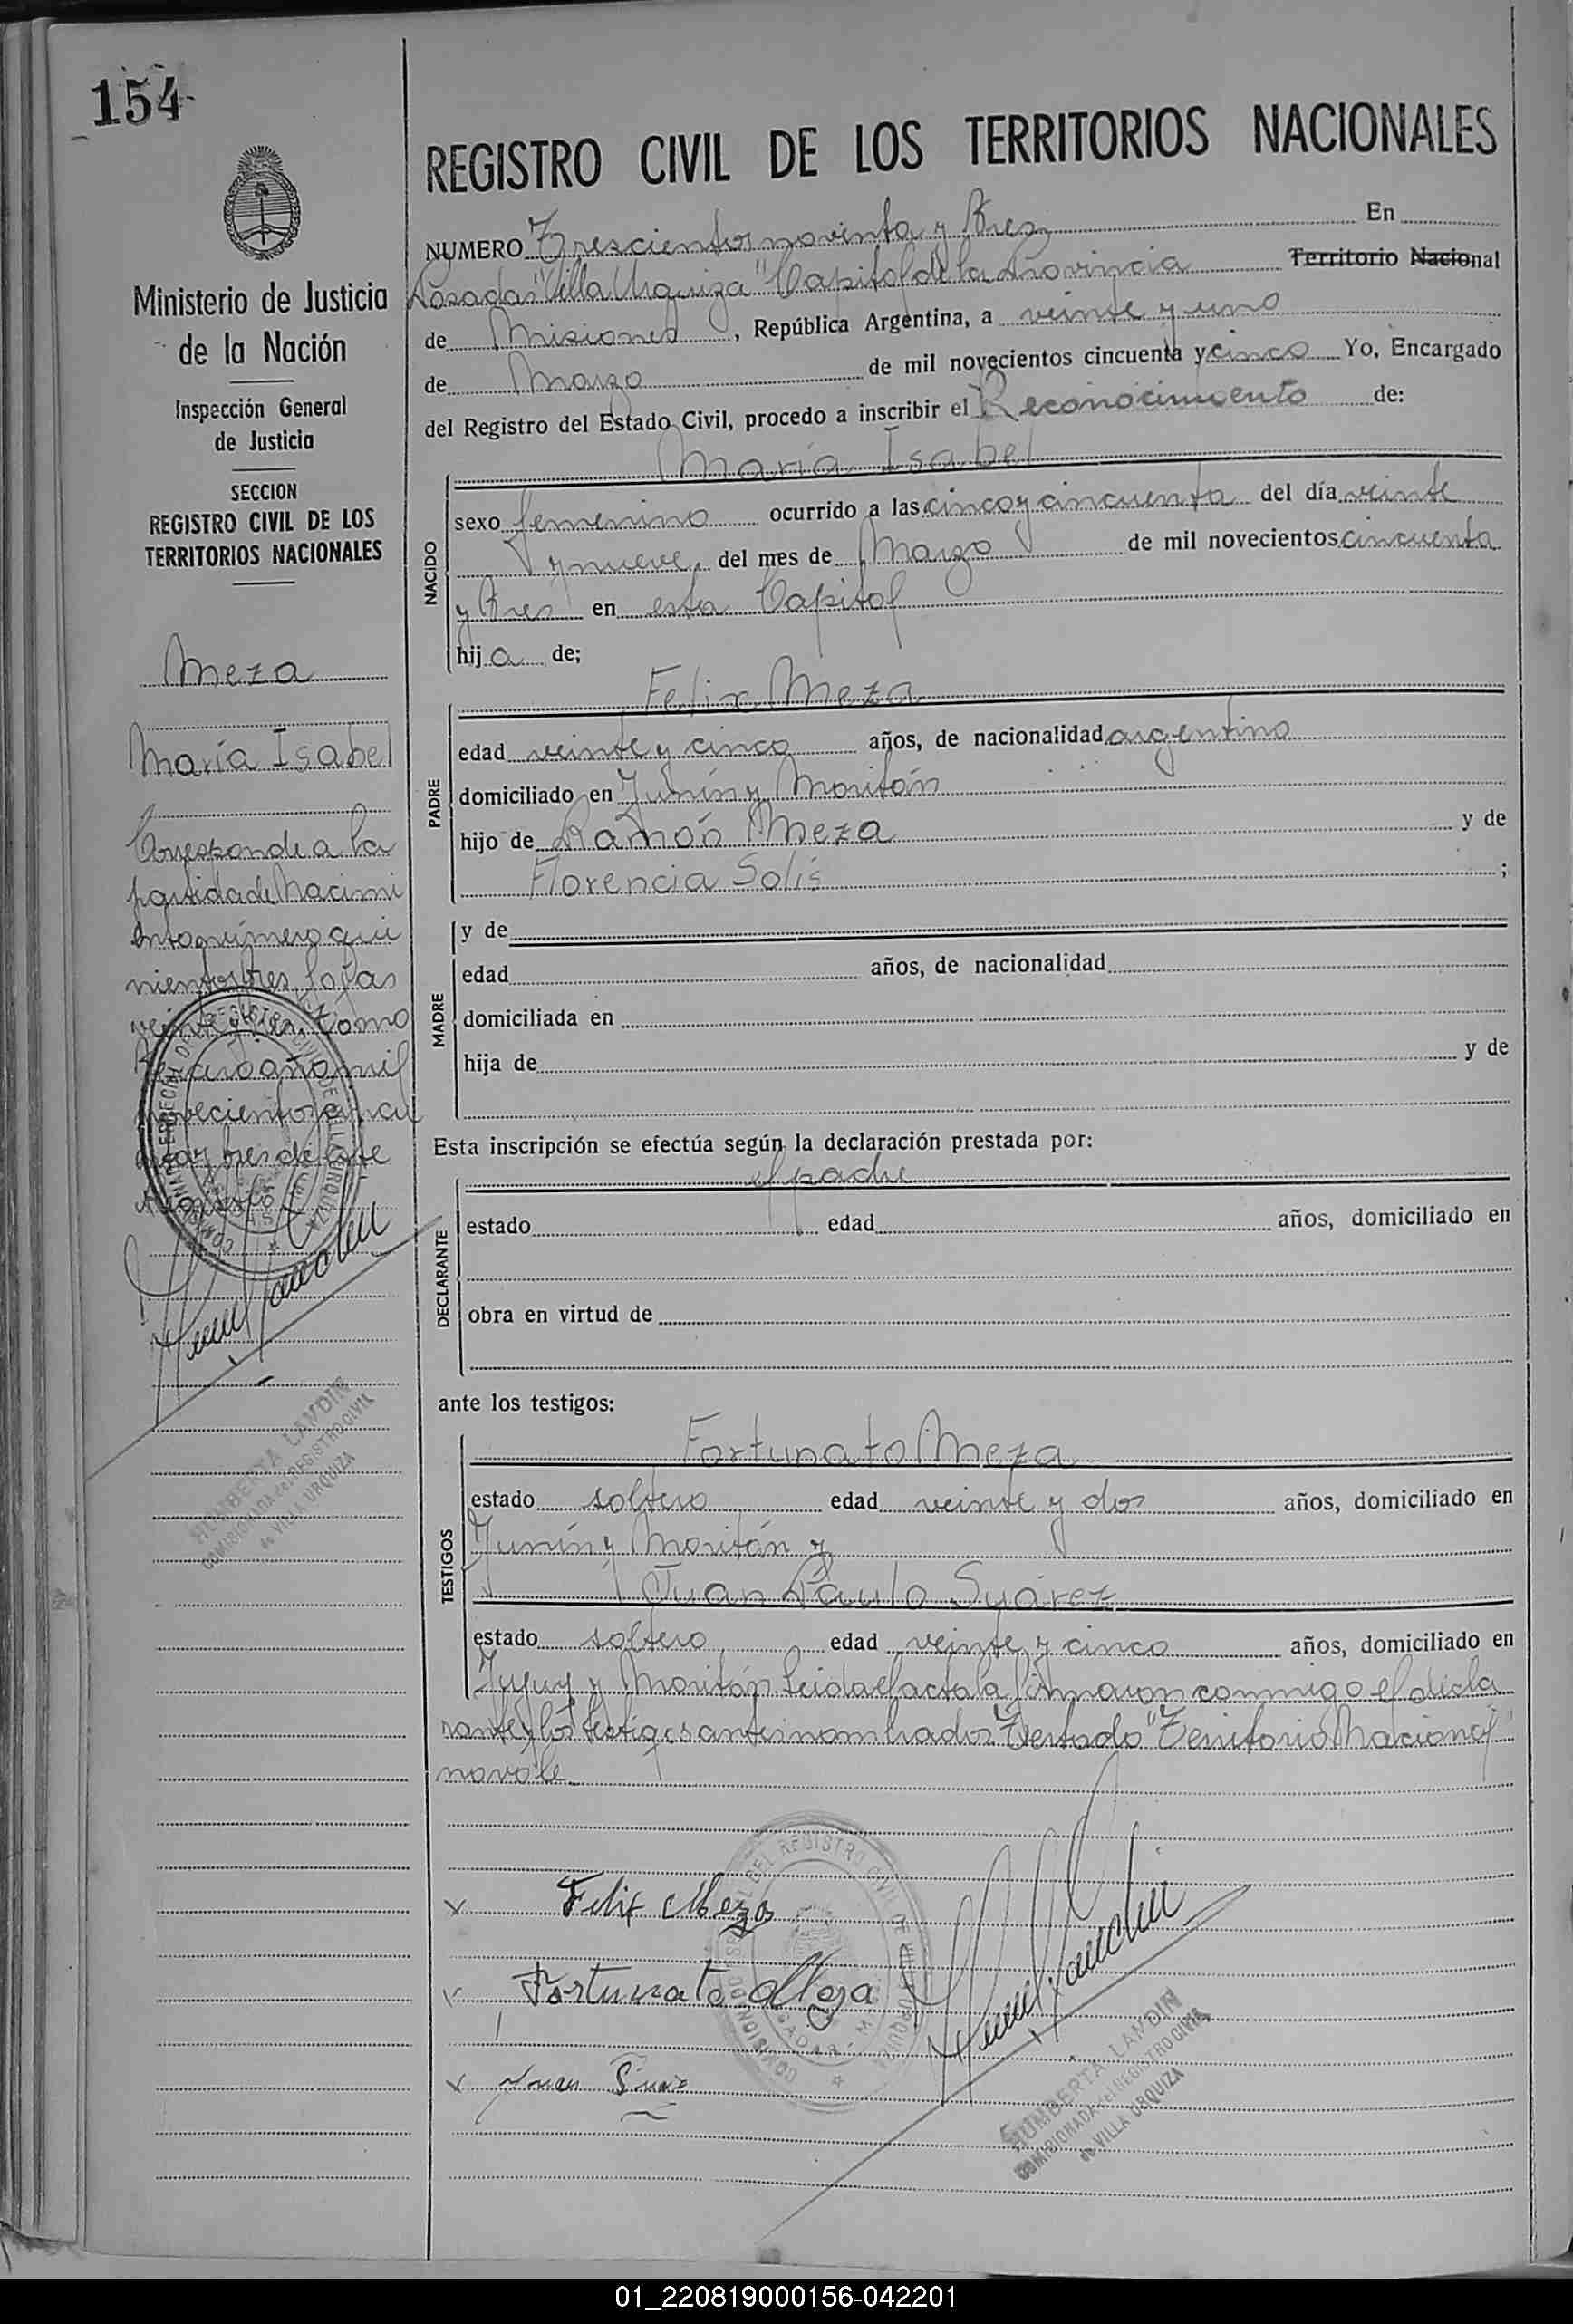 154
Ministerio de Justicia
de la Nación
Inspección General
de Justicia
SECCION
REGISTRO CIVIL DE LOS
TERRITORIOS NACIONALES
Meza
María Isabel
Corresponde a la
partida de Nacimi
ento número qui
nientos tres, fojas
veinte y tres, Tomo
año mil
novecientos cincu
enta y tres de este
HUMBERTA LANDIN
COMISIONADA del REGISTRO CIVIL
de VILLA URQUIZA
REGISTRO CIVIL DE LOS TERRITORIOS NACIONALES
NUMERO Trescientos noventa y Tres En
Posadas "Villa Urquiza" Capital de la Provincia Territorio Nacional
de Misiones, República Argentina, a veinte y uno
de Marzo de mil novecientos cincuenta y cinco Yo, Encargado
del Registro del Estado Civil, procedo a inscribir el Reconocimiento de:
María Isabel
NACIDO
sexo femenino ocurrido a las cinco y cincuenta del día veinte
y nueve del mes de Marzo de mil novecientos cincuenta
y Tres en esta Capital
hija de;
Felix Meza
PADRE
edad veinte y cinco años, de nacionalidad argentino
domiciliado en Junín y Moritán
hijo de Ramón Meza y de
Florencia Solís ;
MADRE
y de
edad años, de nacionalidad
domiciliada en
hija de y de
Esta inscripción se efectúa según la declaración prestada por:
el padre
DECLARANTE
estado edad años, domiciliado en
obra en virtud de
ante los testigos:
Fortunato Meza
TESTIGOS
estado soltero edad veinte y dos años, domiciliado en
Junín y Moritán y
Juan Paulo Suárez
estado soltero edad veinte y cinco años, domiciliado en
Jujuy y Moritán Leida el acta la firmaron conmigo el decla
rante y los testigos antes nombrados Testado "Territorio Nacional"
no vale
x Felix Meza
x Fortunato Meza
x Juan
COMISION DEL REGISTRO CIVIL DE VILLA URQUIZA
HUMBERTA LANDIN
COMISIONADA del REGISTRO CIVIL
de VILLA URQUIZA
01_220819000156-042201